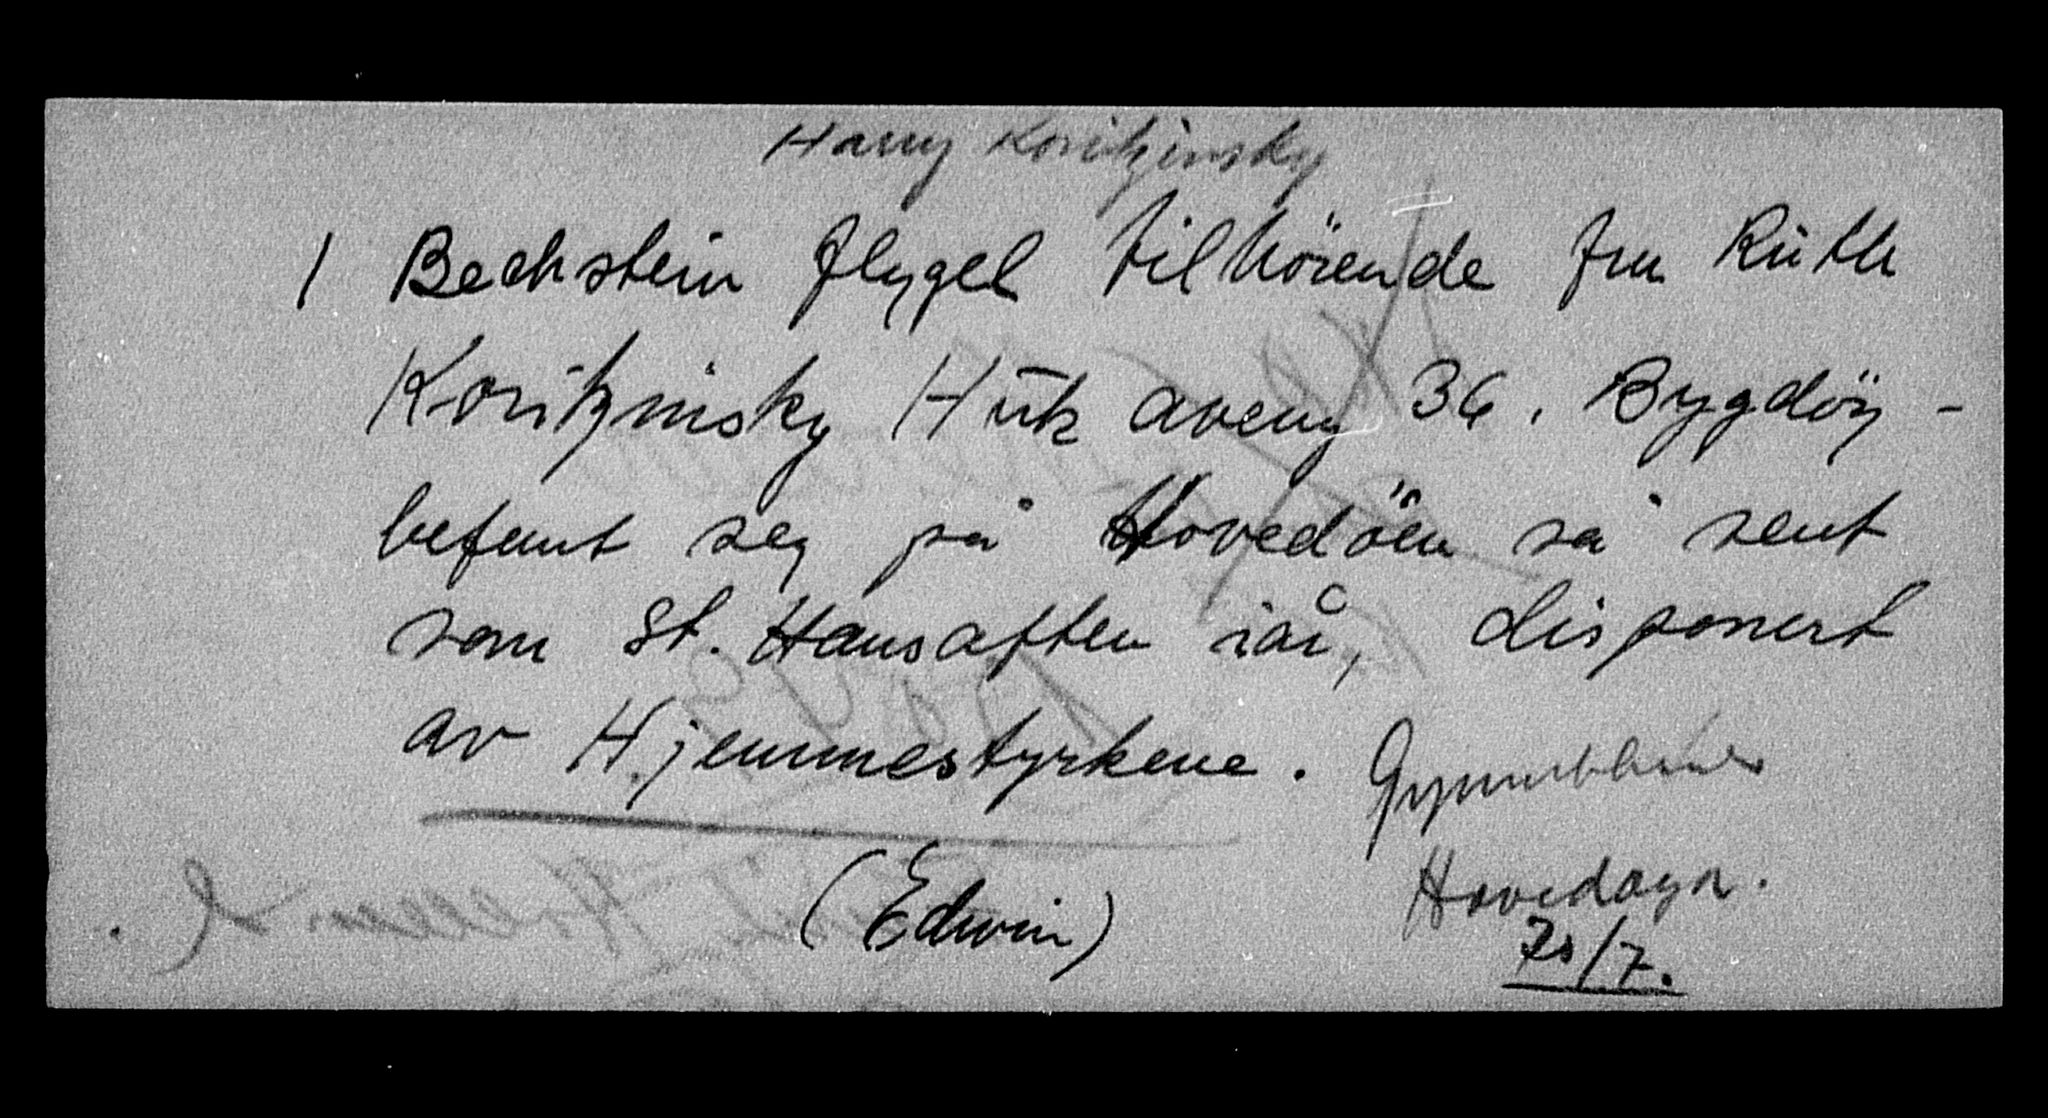 Harry Koritzinsky
1 Bechstein flygel tilhörende fru Ruth
Koritzinsky Huk aveny 36. Bygdöy -
befant seg på Hovedöen så sent
som St. Hansaften iår, disponert
av Hjemmestyrkene.
(Edwin)
Hovedøya.